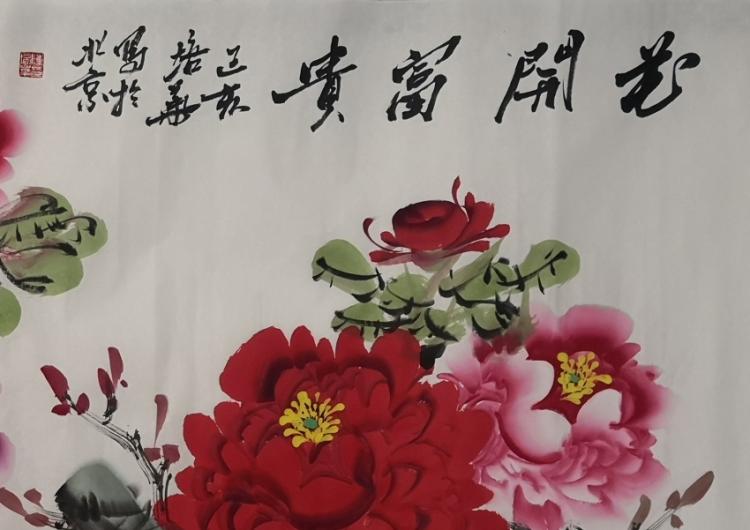 花開富貴
己亥
培華
寫於
北京